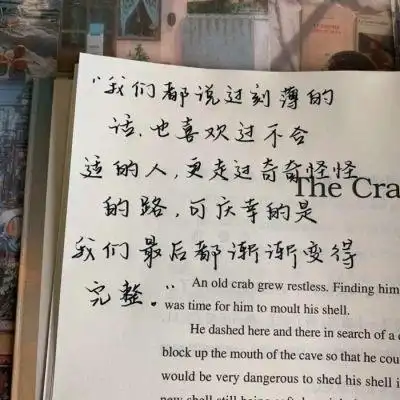 “我们都说过刻薄的
话，也喜欢过不合
适的人，更走过奇奇怪怪
The Cra
的路，可庆幸的是
我们最后都渐渐变得
完整。”
An old crab grew restless. Finding him
was time for him to moult his shell.
He dashed here and there in search of a
block up the mouth of the cave so that he cou
would be very dangerous to shed his shell i